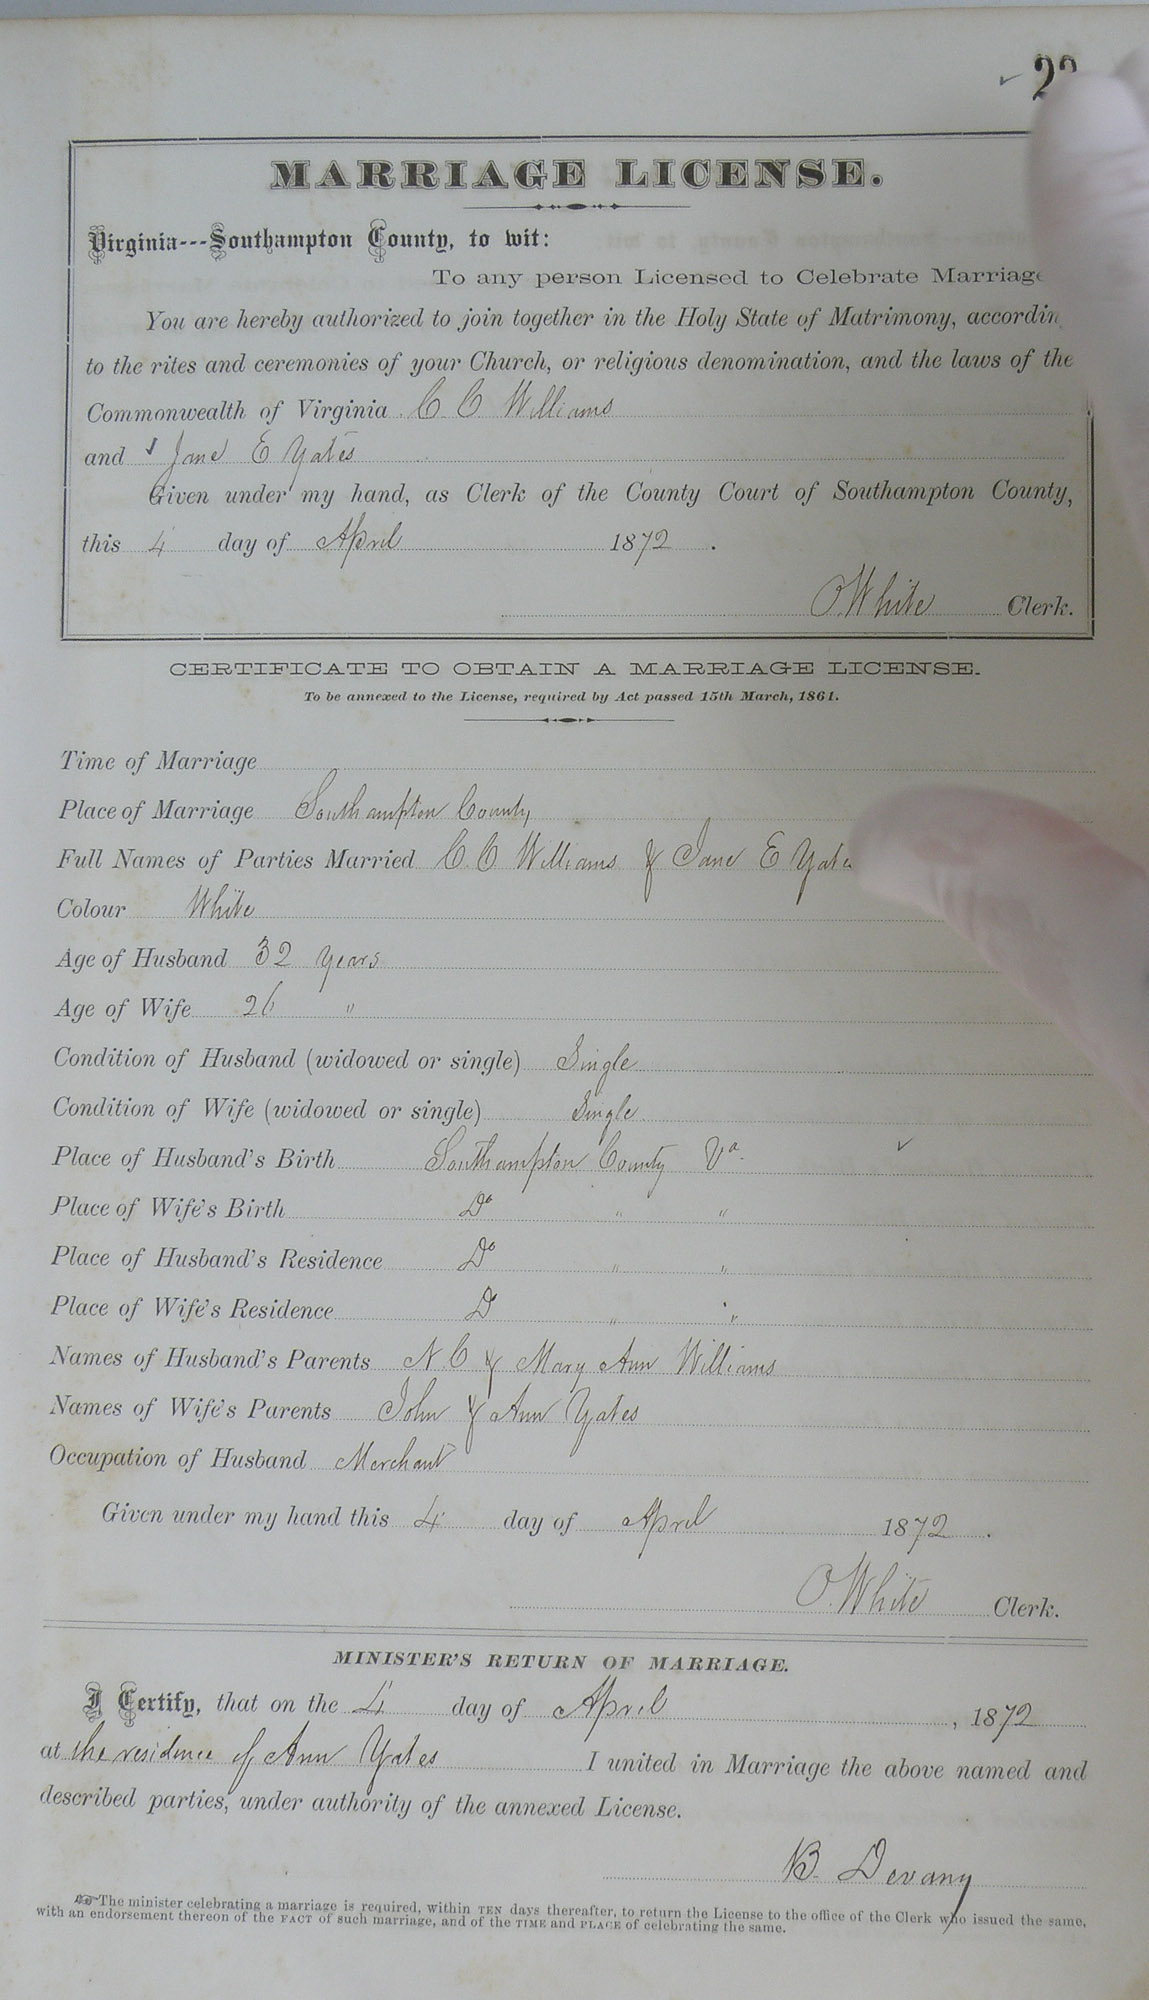 MARRIAGE LICENSE.
Virginia---Southampton County, to wit:
To any person Licensed to Celebrate Marriage
You are hereby authorized to join together in the Holy State of Matrimony, accordin
to the rites and ceremonies of your Church, or religious denomination, and the laws of the
Commonwealth of Virginia C C Williams
and Jane E Yates
Given under my hand, as Clerk of the County Court of Southampton County,
this 4 day of April 1872.
O. White Clerk.
CERTIFICATE TO OBTAIN A MARRIAGE LICENSE.
To be annexed to the License, required by Act passed 15th March, 1861.
Time of Marriage
Place of Marriage Southampton County
Full Names of Parties Married C. C Williams & Jane E Yate
Colour White
Age of Husband 32 Years
Age of Wife 26 "
Condition of Husband (widowed or single) Single
Condition of Wife (widowed or single) Single
Place of Husband's Birth Southampton County Va.
Place of Wife's Birth Do " "
Place of Husband's Residence Do " "
Place of Wife's Residence D " "
Names of Husband's Parents N C & Mary Ann Williams
Names of Wife's Parents John & Ann Yates
Occupation of Husband Merchant
Given under my hand this 4 day of April 1872.
O. White Clerk.
MINISTER'S RETURN OF MARRIAGE.
I Certify, that on the 4 day of April, 1872
at the residence of Ann Yates I united in Marriage the above named and
described parties, under authority of the annexed License.
B. Devany
The minister celebrating a marriage is required, within TEN days thereafter, to return the License to the office of the Clerk who issued the same,
with an endorsement thereon of the FACT of such marriage, and of the TIME and PLACE of celebrating the same.